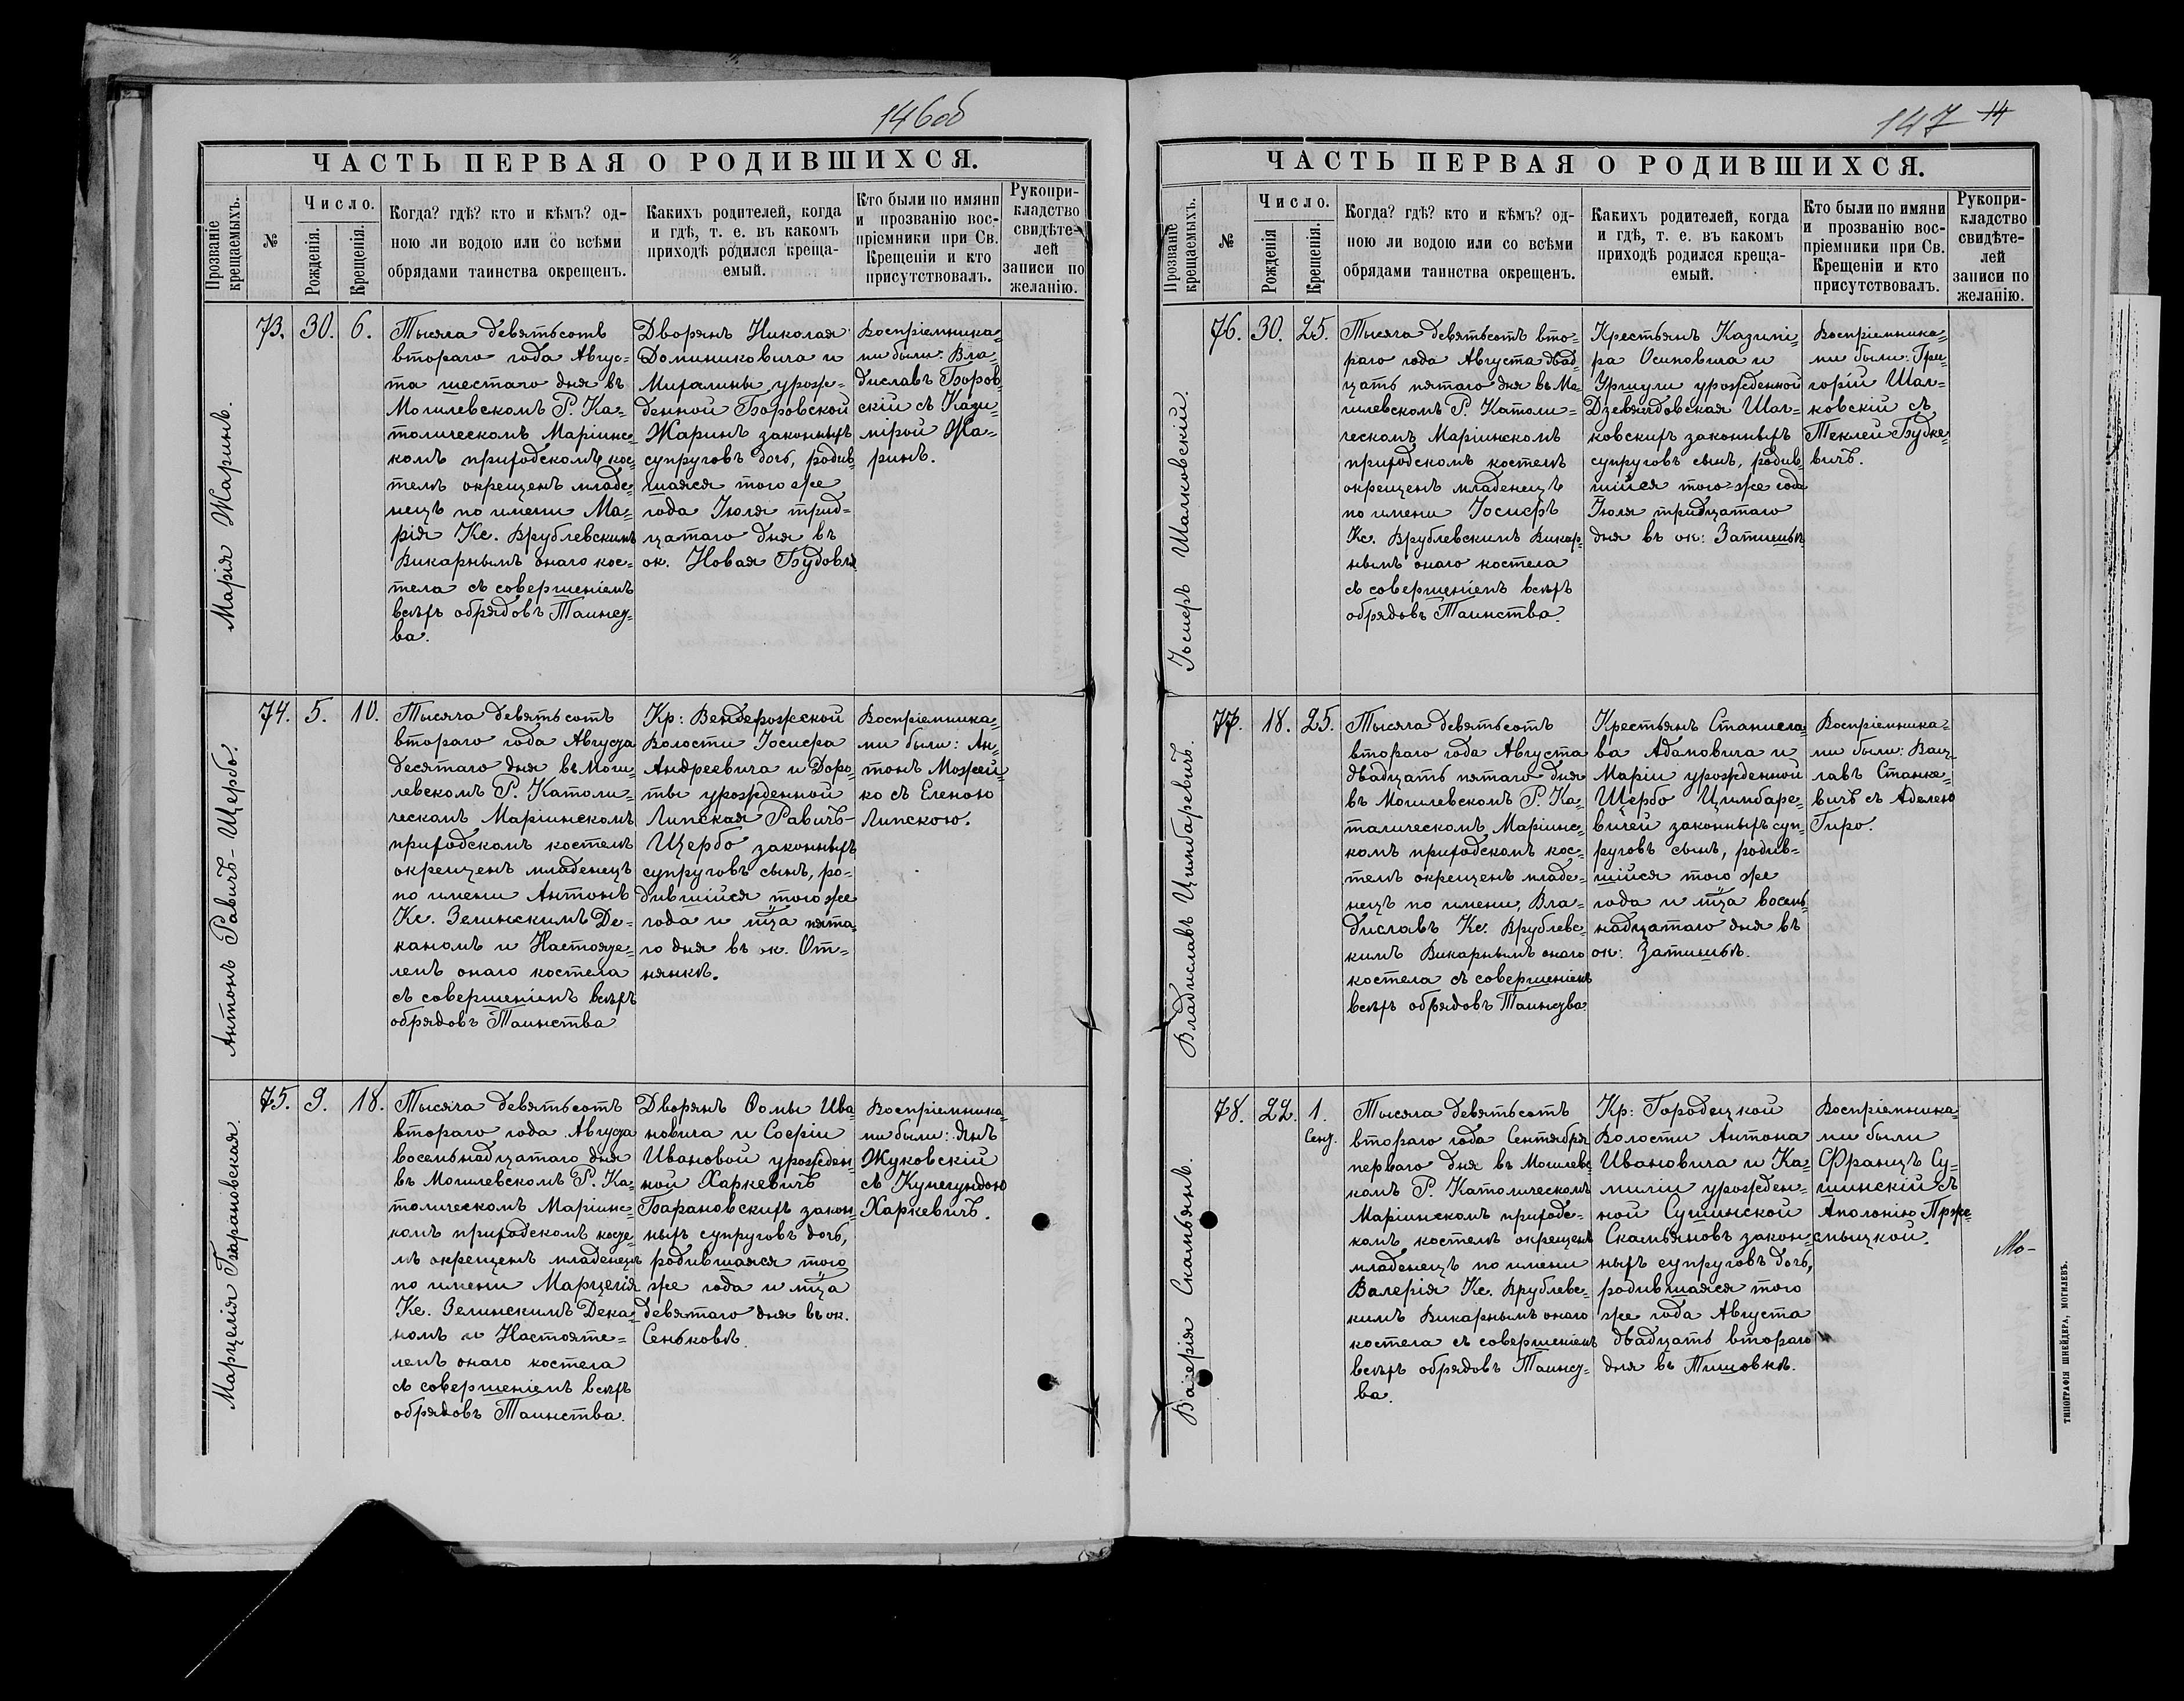 146об
ЧАСТЬ ПЕРВАЯ О РОДИВШИХСЯ.
Прозваніе
крещаемыхъ.
№
Число.
Рожденія.
Крещенія.
Когда? гдѣ? кто и кѣмъ? од-
ною ли водою или со всѣми
обрядами таинства окрещенъ.
Какихъ родителей, когда
и гдѣ, т. е. въ какомъ
приходѣ родился креща-
емый.
Кто были по имяни
и прозванію вос-
пріемники при Св.
Крещеніи и кто
присутствовалъ.
Рукопри-
кладство
свидѣте-
лей
записи по
желанію.
Марія Жаринъ.
73.
30.
6.
Тысяча девятьсотъ
втораго года Авгус=
та шестаго дня въ
Могилевскомъ Р. Ка=
толическомъ Маріинс=
комъ приходскомъ кос=
телѣ окрещенъ младе=
нецъ по имени Ма=
рія Кс. Врублевскимъ
Викарнымъ онаго кос=
тела съ совершеніемъ
всѣхъ обрядовъ Таинст=
ва.
Дворянъ Николая
Доминиковича и
Михалины урож=
денной Боровской
Жаринъ законныхъ
супруговъ дочь, родив=
шаяся того же
года Іюля трид=
цатаго дня въ
ок. Новая Будовля
Воспріемника=
ми были: Вла=
диславъ Боров=
скій съ Кази=
мірой Жа=
ринъ.
Антонъ Равичъ-Щербо.
74.
5.
10.
Тысяча девятьсотъ
втораго года Августа
десятаго дня въ Моги=
левскомъ Р. Католи=
ческомъ Маріинскомъ
приходскомъ костелѣ
окрещенъ младенецъ
по имени Антонъ
Кс. Зелинскимъ Де=
каномъ и Настояте=
лемъ онаго костела
съ совершеніемъ всѣхъ
обрядовъ Таинства
Кр: Вендерожской
Волости Іосифа
Андреевича и Доро=
ты урожденной
Липская Равичъ-
Щербо законныхъ
супруговъ сынъ, ро=
дившійся того же
года и мца пята=
го дня въ ок. От=
нянкѣ.
Воспріемника=
ми были: Ан=
тонъМожей=
ко съ Еленою
Липскою.
Марцелія Барановская.
75.
9.
18.
Тысяча девятьсотъ
втораго года Августа
восемьнадцатаго дня
въ Могилевскомъ Р. Ка=
толическомъ Маріинс=
комъ приходскомъ косте=
лѣ окрещенъ младенецъ
по имени Марцелія
Кс. Зелинскимъ Дека=
номъ и Настояте=
лемъ онаго костела
съ совершеніемъ всѣхъ
обрядовъ Таинства.
Дворянъ Ѳомы Ива=
новича и Софіи
Ивановой урожден=
ной Харкевичъ
Барановскихъ закон=
ныхъ супруговъ дочь,
родившаяся того
же года и мца
девятаго дня въ ок.
Сеньковѣ.
Воспріемника=
ми были: Янъ
Жуковскій
съ Кунегундою
Харкевичъ.
147 14
ЧАСТЬ ПЕРВАЯ О РОДИВШИХСЯ.
Прозваніе
крещаемыхъ.
№
Число.
Рожденія
Крещенія.
Когда? гдѣ? кто и кѣмъ? од-
ною ли водою или со всѣми
обрядами таинства окрещенъ.
Какихъ родителей, когда
и гдѣ, т. е. въ какомъ
приходѣ родился креща-
емый.
Кто были по имяни
и прозванію вос-
пріемники при Св.
Крещеніи и кто
присутствовалъ.
Рукопри-
кладство
свидѣте-
лей
записи по
желанію.
Іосифъ Шалковскій.
76.
30.
25.
Тысяча девятьсотъ вто=
раго года Августа двад=
цать пятаго дня въ Мо=
гилевскомъ Р. Католи=
ческомъ Маріинскомъ
приходскомъ костелѣ
окрещенъ младенецъ
по имени Іосифъ
Кс. Врублевскимъ Викар=
нымъ онаго костела
съ совершеніемъ всѣхъ
обрядовъ Таинства.
Крестьянъ Казимі=
ра Осиповича и
Уршули урожденной
Дзевялдовская Шал=
ковскихъ законныхъ
супруговъ сынъ, родив=
шійся того же года
Іюля тридцатаго
дня въ ок: Затишьѣ
Воспріемника=
ми были: Гри=
горій Шал=
ковскій съ
Теклей Будке=
вичъ.
Владиславъ Цимбаревичъ.
77.
18.
25.
Тысяча девятьсотъ
втораго года Августа
двадцать пятаго дня
въ Могилевскомъ Р. Ка=
толическомъ Маріинс=
комъ приходскомъ кос=
телѣ окрещенъ младе=
нецъ по имени, Вла=
диславъ Кс. Врублевс=
кимъ Викарнымъ онаго
костела съ совершеніемъ
всѣхъ обрядовъ Таинства
Крестьянъ Станисла=
ва Адамовича и
Маріи урожденной
Щербо Цимбаре=
вичей законныхъ суп=
руговъ сынъ, родив=
шійся того же
года и мца восемь=
надцатаго дня въ
ок: Затишьѣ.
Воспріемника=
ми были: Вац=
лавъ Станке=
вичъ съ Аделею
Гиро.
Валерія Скамьянъ.
78.
22.
1.
Сент.
Тысяча девятьсотъ
втораго года Сентября
перваго дня въ Могилевс=
комъ Р. Католическомъ
Маріинскомъ приходс=
комъ костелѣ окрещенъ
младенецъ по имени
Валерія Кс. Врублевс=
кимъ Викарнымъ онаго
костела съ совершеніемъ
всѣхъ обрядовъ Таинст=
ва.
Кр: Городецкой
Волости Антона
Ивановича и Ка=
миліи урожден=
ной Сушинской
Скамьяновъ закон=
ныхъ супруговъ дочь,
родившаяся того
же года Августа
двадцать втораго
дня въ Тишовкѣ.
Воспріемника=
ми были
Францъ Су=
шинскій съ
Аполонію Прже=
смыцкой.
Мо-
ТИПОГРАФІЯ ШНЕЙДЕРА, МОГИЛЕВЪ.